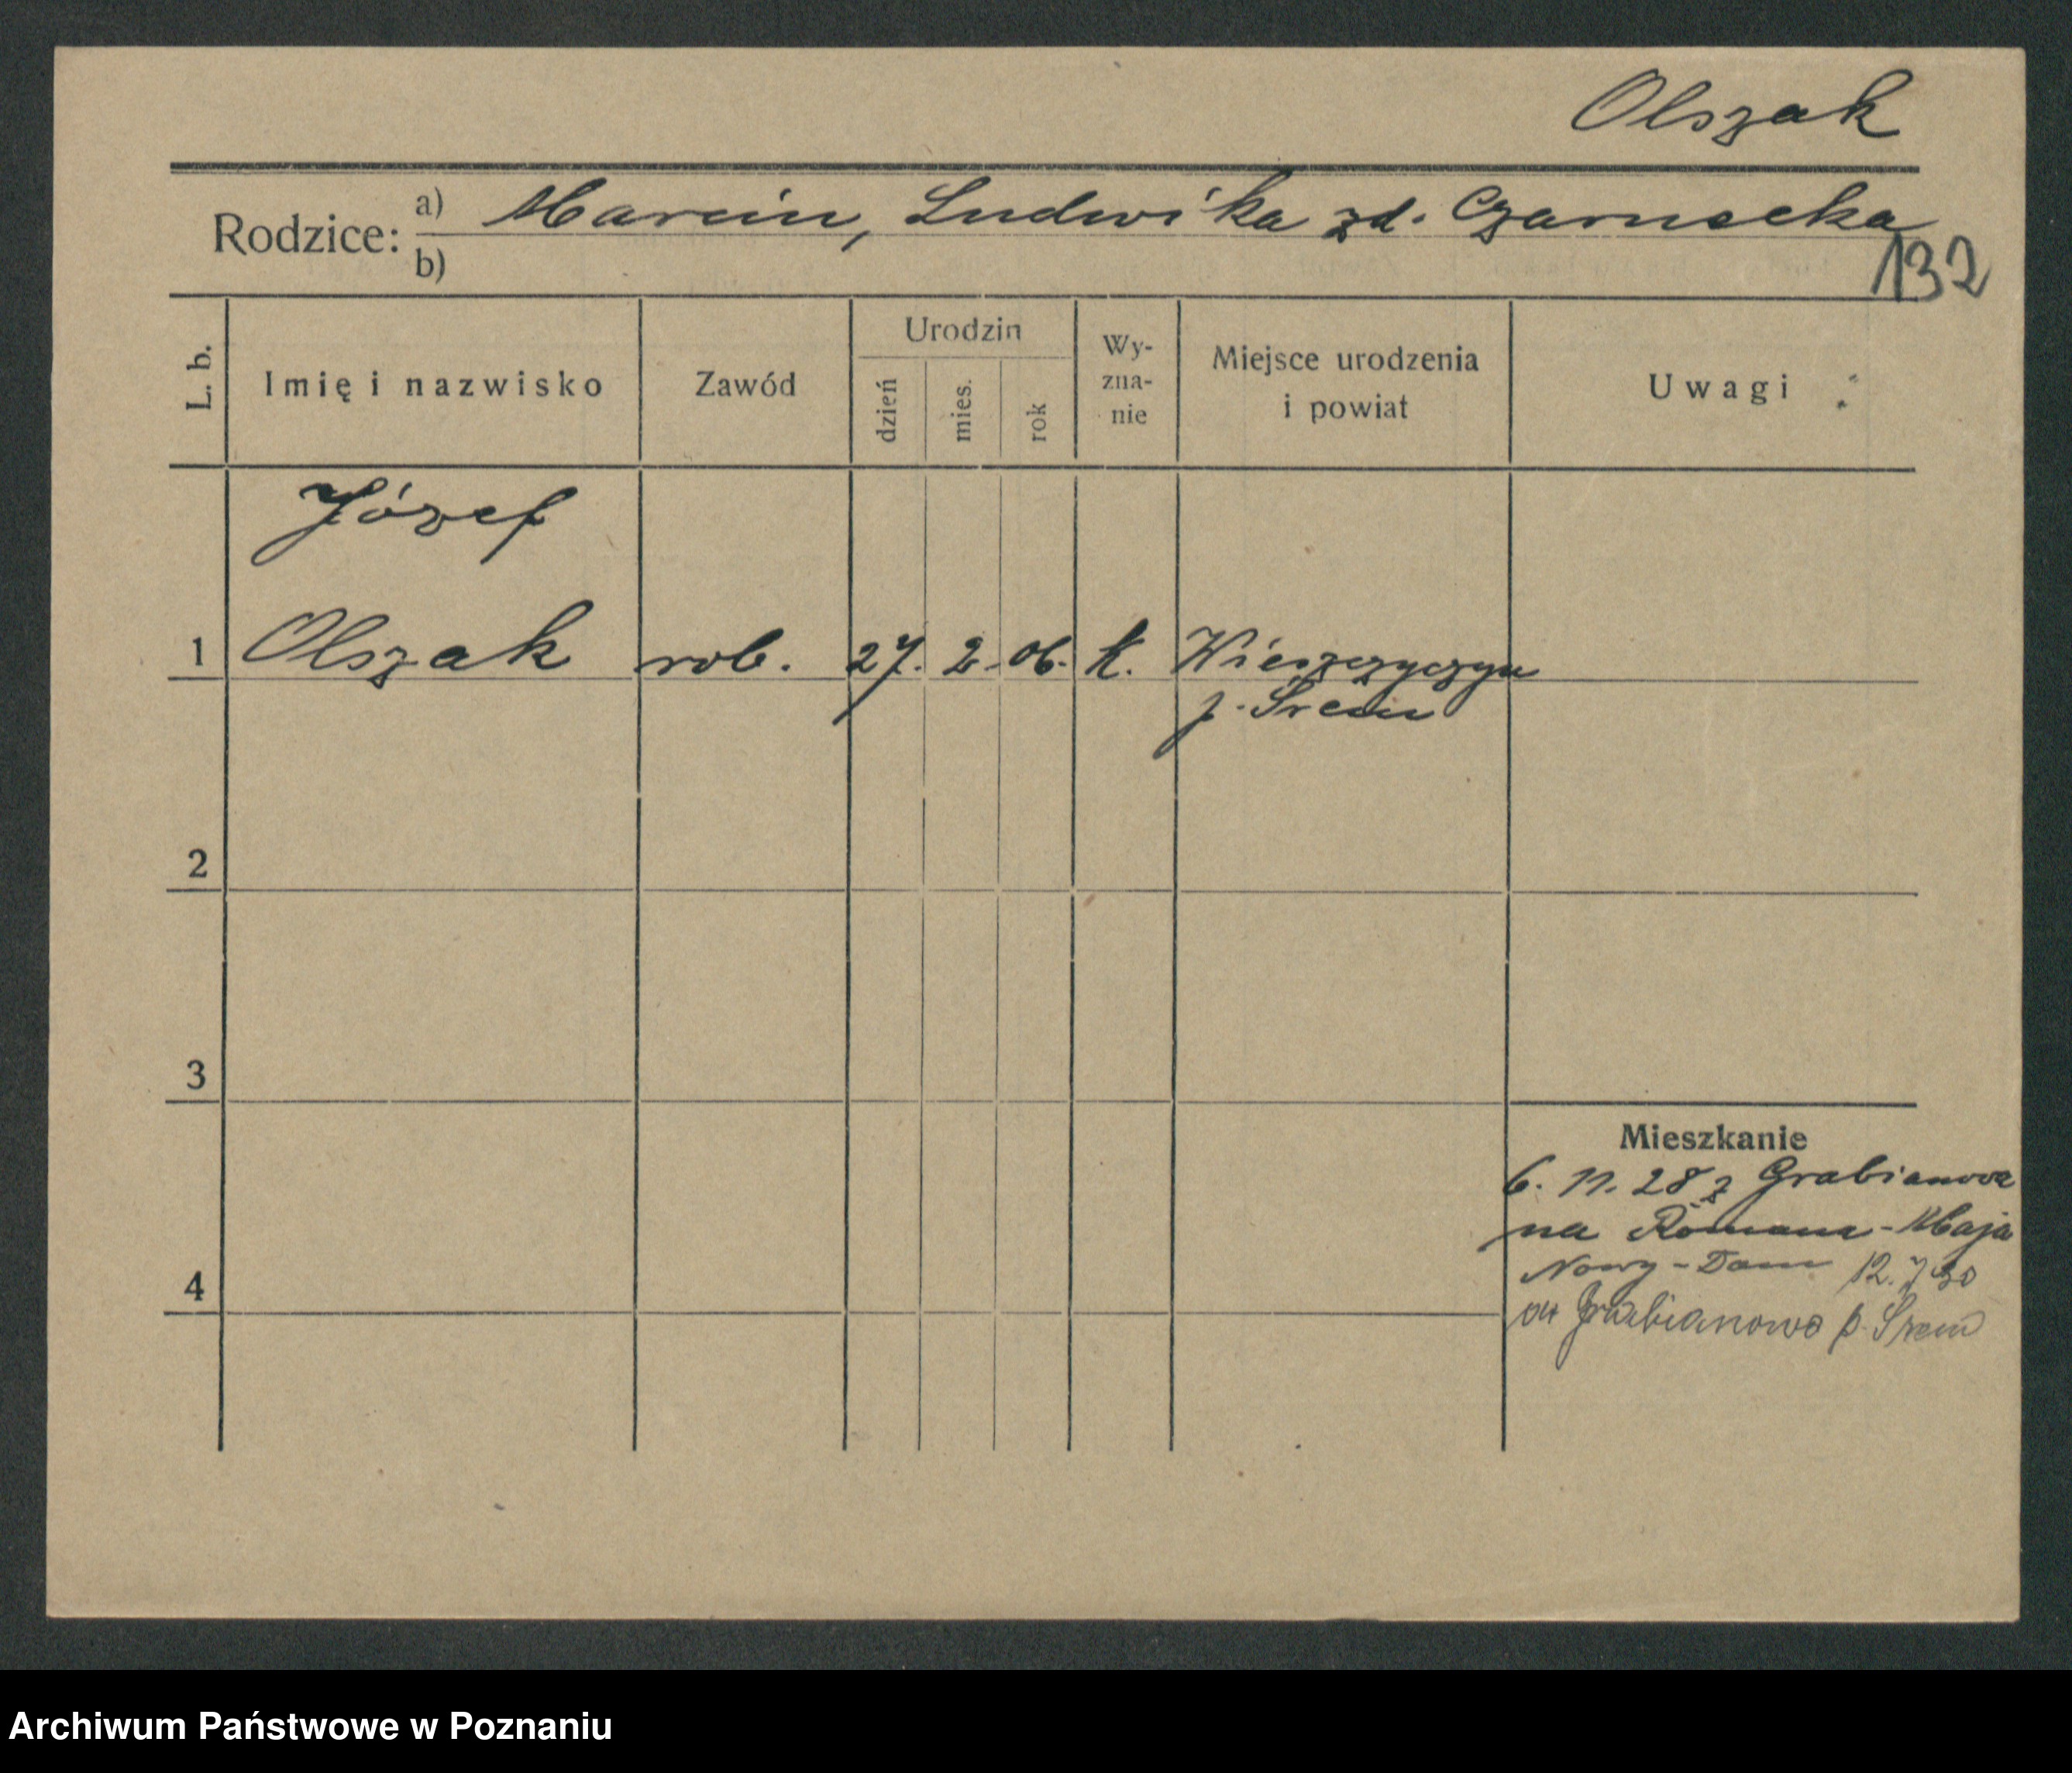 Olszak
Rodzice: a) Marcin, Ludwika zd. Czarnecka
b)
132
L. b.
Imię i nazwisko
Zawód
Urodzin
dzień
mies.
rok
Wy-
zna-
nie
Miejsce urodzenia
i powiat
Uwagi
Józef
1 Olszak rob. 27. 2. 06. k. Wieszczyczyn
p. Śrem
2
3
4
Mieszkanie
6. 11. 28 z Grabianowa
na Romana-Maja
Nowy-Dom 12. 7 30
Grabianowo p. Śrem
Archiwum Państwowe w Poznaniu